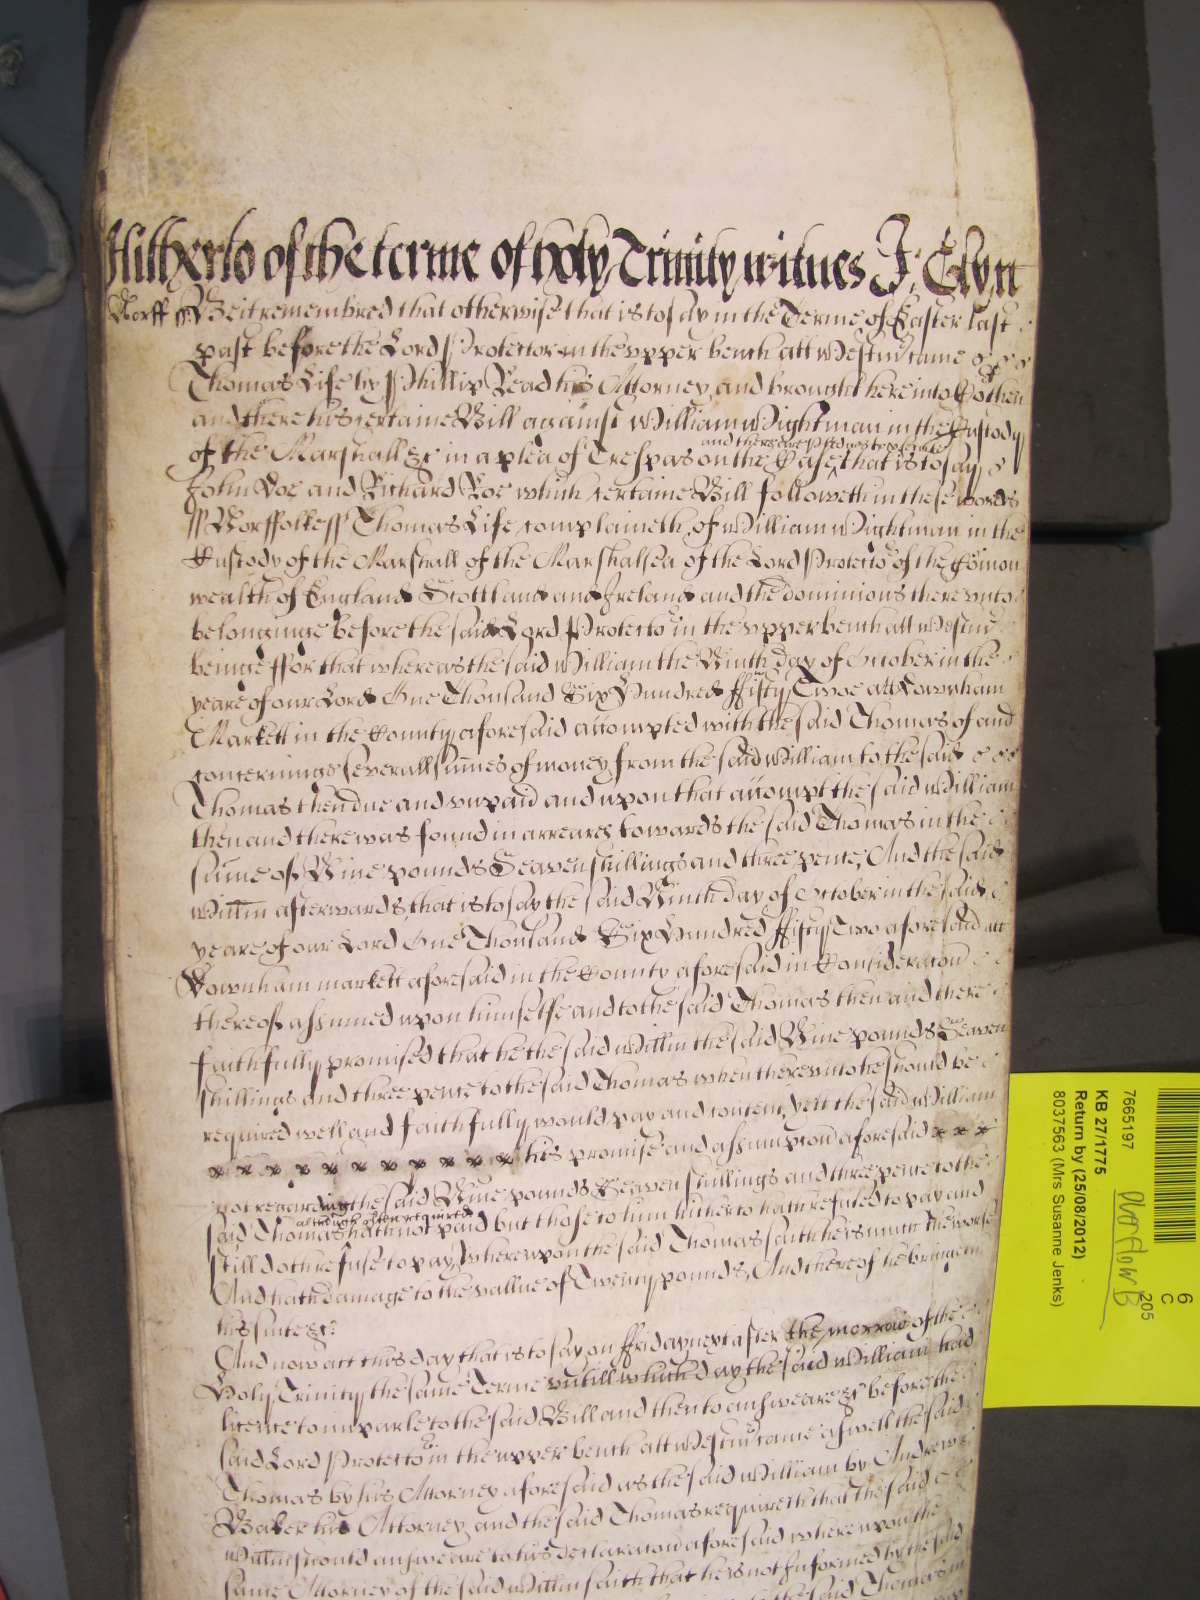 Hitherto of the terme of holy Trinity witnes J. Glyn
Norff ss. Be it remembred that otherwise that is to say in the Terme of Easter last
past before the Lord Protector in the upper bench att Westm came
Thomas Life by Phillip Read his Attorney and brought here into Co then
and there his certaine Bill against William Wightman in the Custody
and there are pledges to prosecute
of the Marshall &c in a plea of Trespas on the Case that is to say
John Doe and Richard Roe which certaine Bill followeth in these words
ss Norffolke ss Thomas Life complaineth of William Wightman in the
Custody of the Marshall of the Marshalsea of the Lord Protector of the Comon
wealth of England Scotland and Ireland and the dominions thereunto
belonginge before the said Lord Protector in the upper bench att Westm
beinge ffor that whereas the said William the Ninth day of October in the
yeare of our Lord One Thousand Six Hundred ffifty Twoe att Downham
Markett in the County aforesaid accompted with the said Thomas of and
concerninge severall sumes of money from the said William to the said
Thomas then due and unpaid and upon that accompt the said William
then and there was found in arreares towards the said Thomas in the
sume of Nine pounds Seaven shillings and three pence, And the said
Willm afterwards that is to say the said Ninth day of October in the said
yeare of our Lord One Thousand Six Hundred ffifty Two aforesaid att
Downham markett aforesaid in the County aforesaid in Consideracon
thereof assumed upon himselfe and to the said Thomas then and there
faithfully promised that he the said Willm the said Nine pounds Seaven
shillings and three pence to the said Thomas when thereunto he should be
required well and faithfully would pay and content, Yett the said William
his promise and assumpcon aforesaid
not regarding the said Nine pounds Seaven shillings and three pence to the
although often required
said Thomas hath not paid but those to him hitherto hath refused to pay and
still doth refuse to pay, whereupon the said Thomas saith he is much the worse
And hath damage to the vallue of Twenty pounds, And thereof he bringeth
his suite &c
And now att this day that is to say on ffriday next after the morrow of the
Holy Trinity the same Terme untill which day the said William had
licence to imparle to the said Bill and then to answeare &c before the
said Lord Protector in the upper bench att Westm came aswell the said
Thomas by his Attorney aforesaid as the said William by Andrewe
Baker his Attorney and the said Thomas requireth that the said
Willm should answeare to his declaracon aforesaid whereupon the
same Attorney of the said Willm saith that he is not Informed by the said
7665197
KB 27/1775
Return by (25/08/2012)
8037563 (Mrs Susanne Jenks)
6
C
205